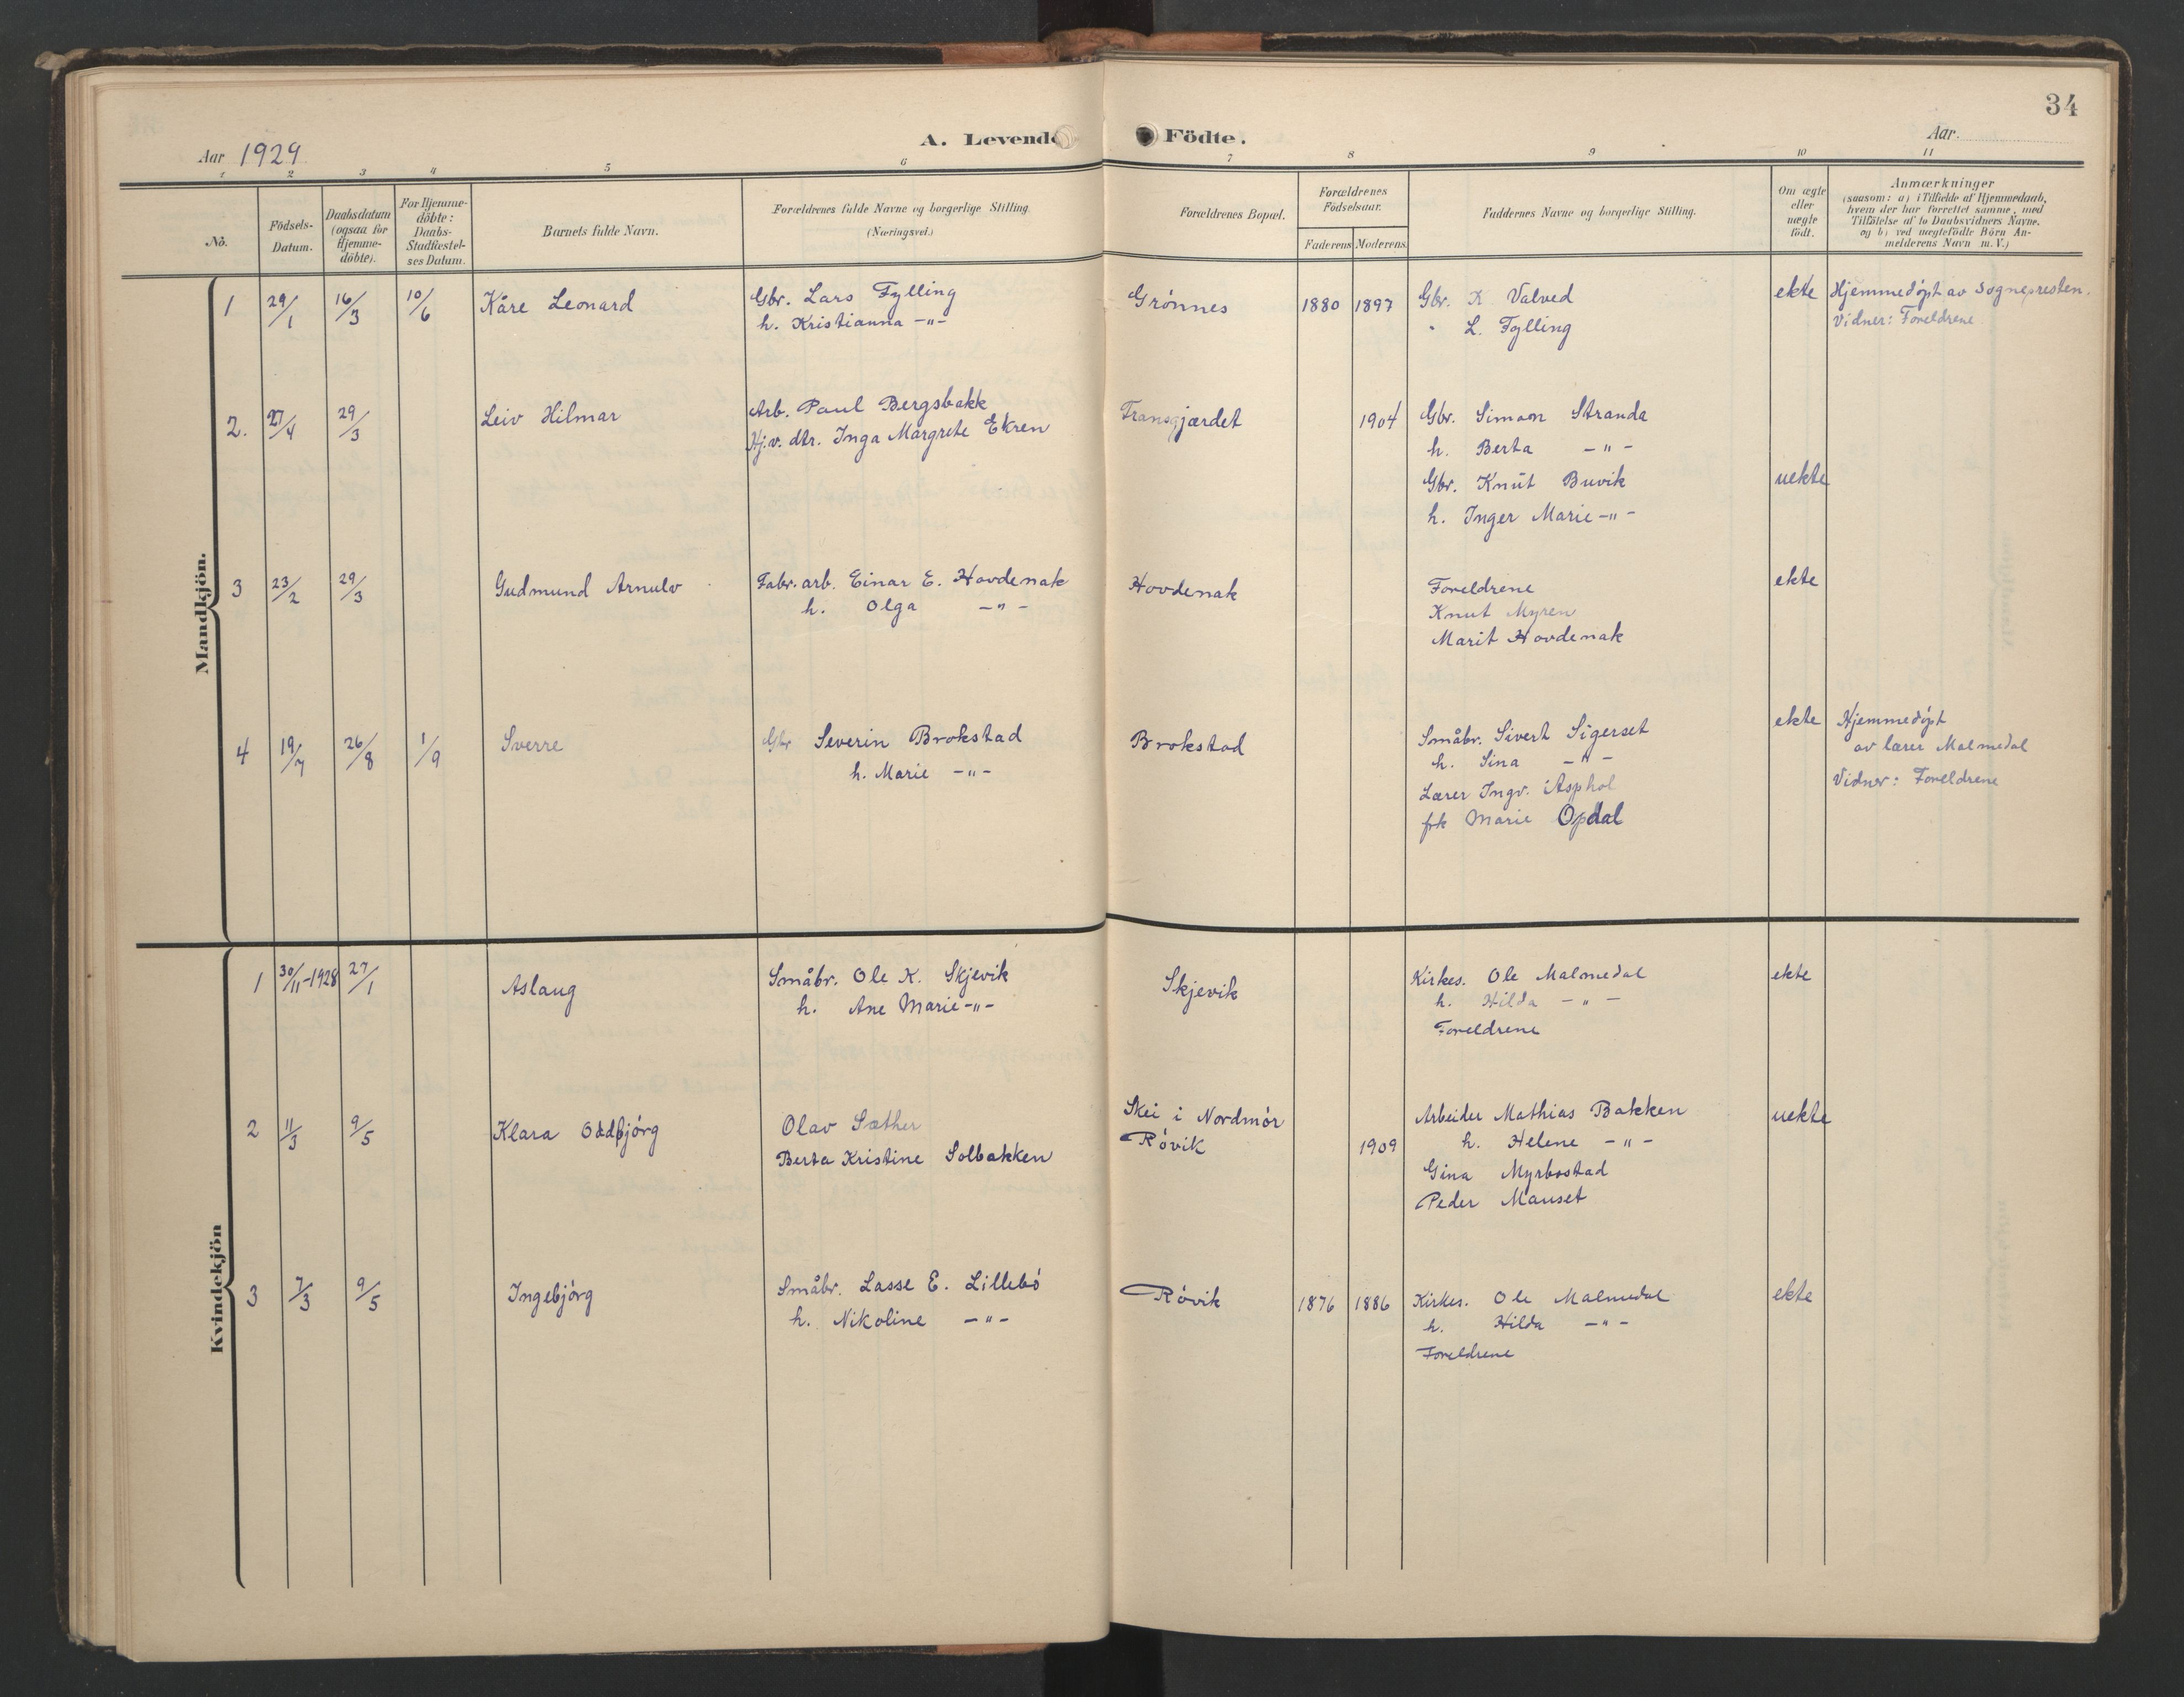 34
A. Levende Födte.
Aar 1929
Aar
1 2 3 4 5 6 7 8 9 10 11
No.
Födsels-
Datum.
Daabsdatum
(ogsaa for
Hjemme-
döbte).
For Hjemme-
döbte:
Daabs-
Stadfæstel-
ses Datum.
Barnets fulde Navn.
Forældrenes fulde Navne og borgerlige Stilling.
(Næringsvei.)
Forældrenes Bopæl.
Forældrenes
Födselsaar.
Faderens Moderens
Faddernes Navne og borgerlige Stilling.
Om ægte
eller
uægte
födt.
Anmærkninger
(saasom: a) i Tilfælde af Hjemmedaab,
hvem der har forrettet samme, med
Tilföielse af to Daabsvidners Navne.
og b) ved uægtefödte Börn An-
melderens Navn m. V.)
Mandkjön.
1 29/1 16/3 10/6 Kåre Leonard
Gbr. Lars Fylling
h. Kristianna -"-
Grönnes 1880 1897
Gbr. K Valved
" L. Fylling
ekte
Hjemmedöpt av Sognepresten.
Vidner: Foreldrene
2. 27/4 29/3 Leiv Hilmar
Arb. Paul Bergsbakk
Hj.v. dtr. Inga Margrete Ekren
Transgjærdet 1904
Gbr. Simon Stranda
h. Berta -"-
Gbr. Knut Buvik
h. Inger Marie -"-
uekte
3 23/2 29/3 Gudmund Arnulv
Fabr.arb. Einar E. Hovdenak
h. Olga -"-
Hovdenak
Foreldrene
Knut Myren
Marit Hovdenak
ekte
4 19/7 26/8 1/9 Sverre
Gbr Severin Brokstad
h. Marie -"-
Brokstad
Småbr. Sivert Sigerset
h. Sina -"-
Lærer Ingv. Asphol
frk Marie Opdal
ekte
Hjemmedöpt
av lærer Malmedal
Vidner: Foreldrene
Kvindekjön
1 30/11-1928 27/1 Aslaug
Småbr. Ole K. Skjevik
h. Ane Marie -"-
Skjevik
Kirkes. Ole Malmedal
h. Hilda -"-
Foreldrene
ekte
2 11/3 9/5 Klara Oddbjörg
Olav Sæther
Berta Kristine Solbakken
Skei i Nordmör
Rövik 1909
Arbeider Mathias Bakken
h. Helene -"-
Gina Myrbostad
Peder Mauset
uekte
3 7/3 9/5 Ingebjörg
Småbr. Lasse E. Lillebö
h. Nikoline -"-
Rövik 1876 1886
Kirkes. Ole Malmedal
h. Hilda -"-
Foreldrene
ekte